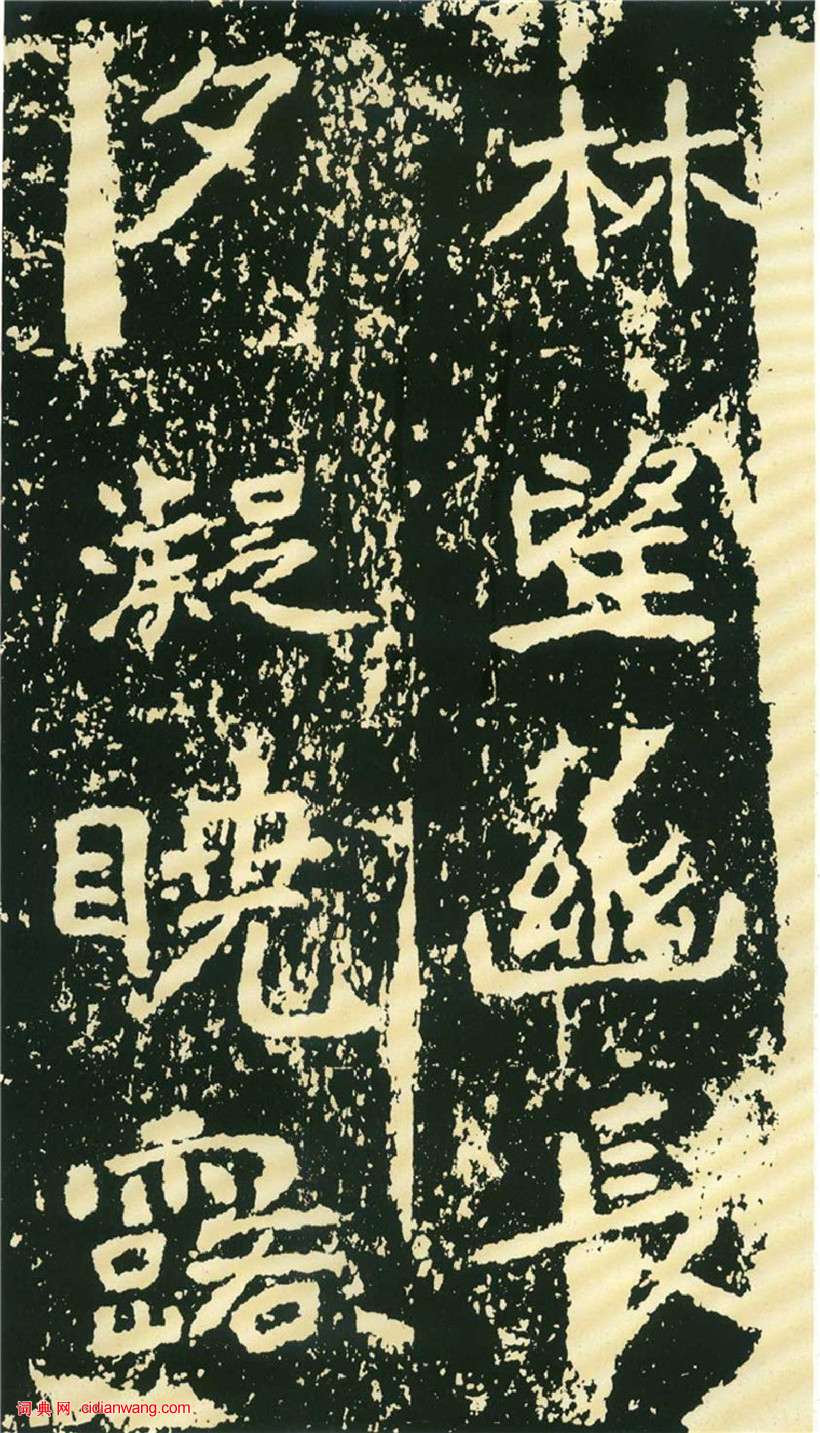 林望幽長
夕凝曉露
词典网 cidianwang.com